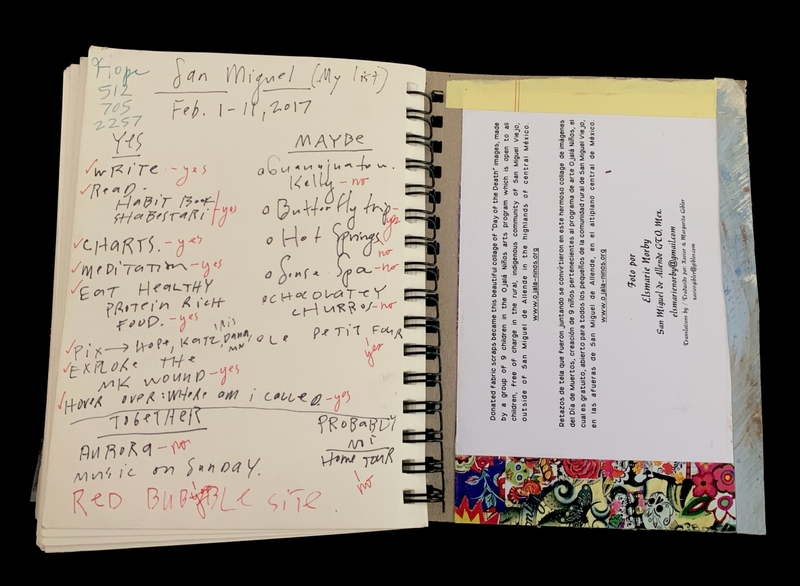 Hope
512
705
2257
San Miguel (My list)
Feb. 1-11, 2017
YES
✓WRITE - yes
✓Read.
HABIT BOOK
SHABESTARI - yes
✓CHARTS. - yes
✓MEDITATION - yes
✓EAT HEALTHY
PROTEIN RICH
FOOD. - yes
✓Pix → HOPE, KATZ, IRIS, DANA, MN
✓EXPLORE THE
MK WOUND - yes
✓HOVER OVER: WHERE AM I CALLED. - yes
MAYBE
o Guanajuato.
Kelly - no
o Butterfly trip - yes
o Hot Springs - no
o Sense Spa - no
o CHOCOLATEY
CHURROS - no
OLE PETIT FOUR
yes
TOGETHER
AURORA - no
music on SUNDAY.
RED BUBBLE site.
PROBABLY
NO
Home Tour
no
Donated fabric scraps became this beautiful collage of "Day of the Death" images, made
by a group of 9 children in the Ojalá Niños arts program which is open to all
children, free of charge in the rural, indigenous community of San Miguel Viejo,
outside of San Miguel de Allende in the highlands of central México.
www.ojala-ninos.org
Retazos de tela que fueron juntando se convirtieron en este hermoso collage de imágenes
del Día de Muertos, creación de 9 niños pertenecientes al programa de arte Ojalá Niños, el
cual es gratuito, abierto para todos los pequeños de la comunidad rural de San Miguel Viejo,
en las afueras de San Miguel de Allende, en el altiplano central de México.
www.ojala-ninos.org
Foto por
Elsmarie Norby
San Miguel de Allende GTO, Mex.
elsmarienorby@gmail.com
Translations by / Traducido por: Xavier & Margarita Gibler
xaviergibler@gibler.com